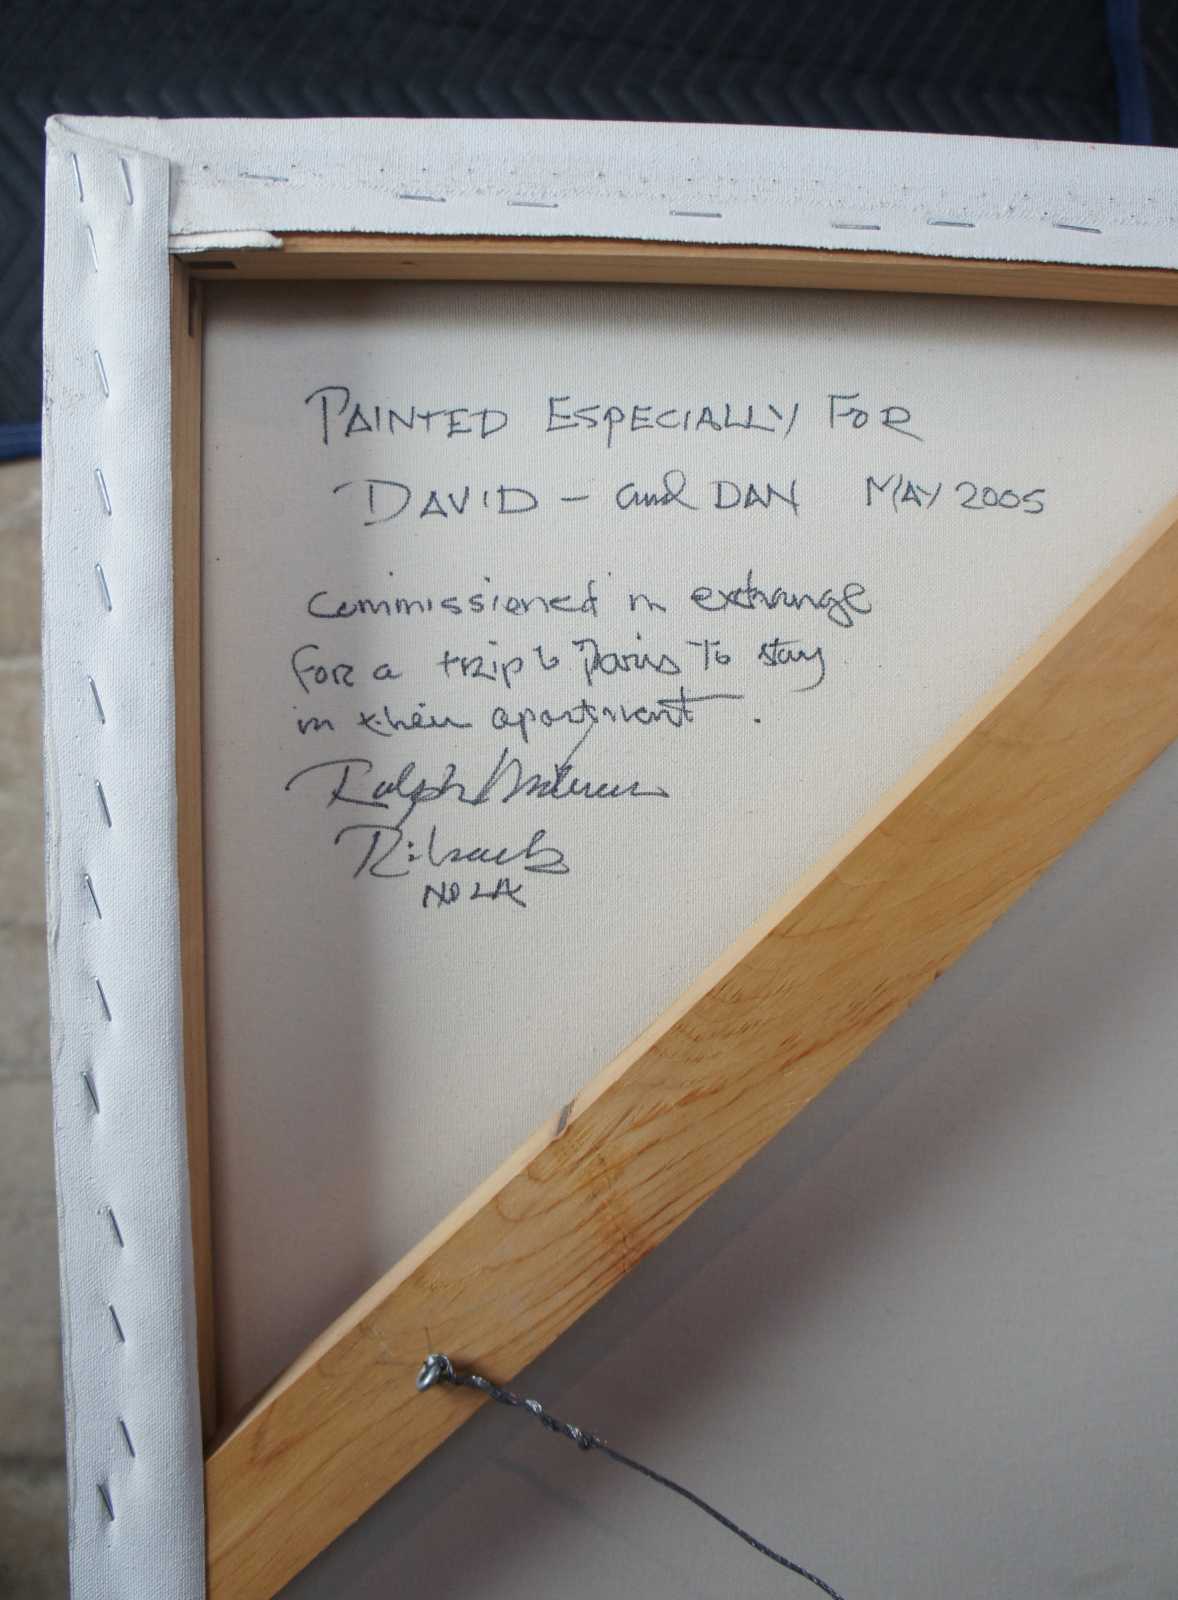 PAINTED ESPECIALLY FOR
DAVID - and DAN MAY 2005
commissioned in exchange
for a trip to Paris To stay
in their apartment.
Ralph
NOLA